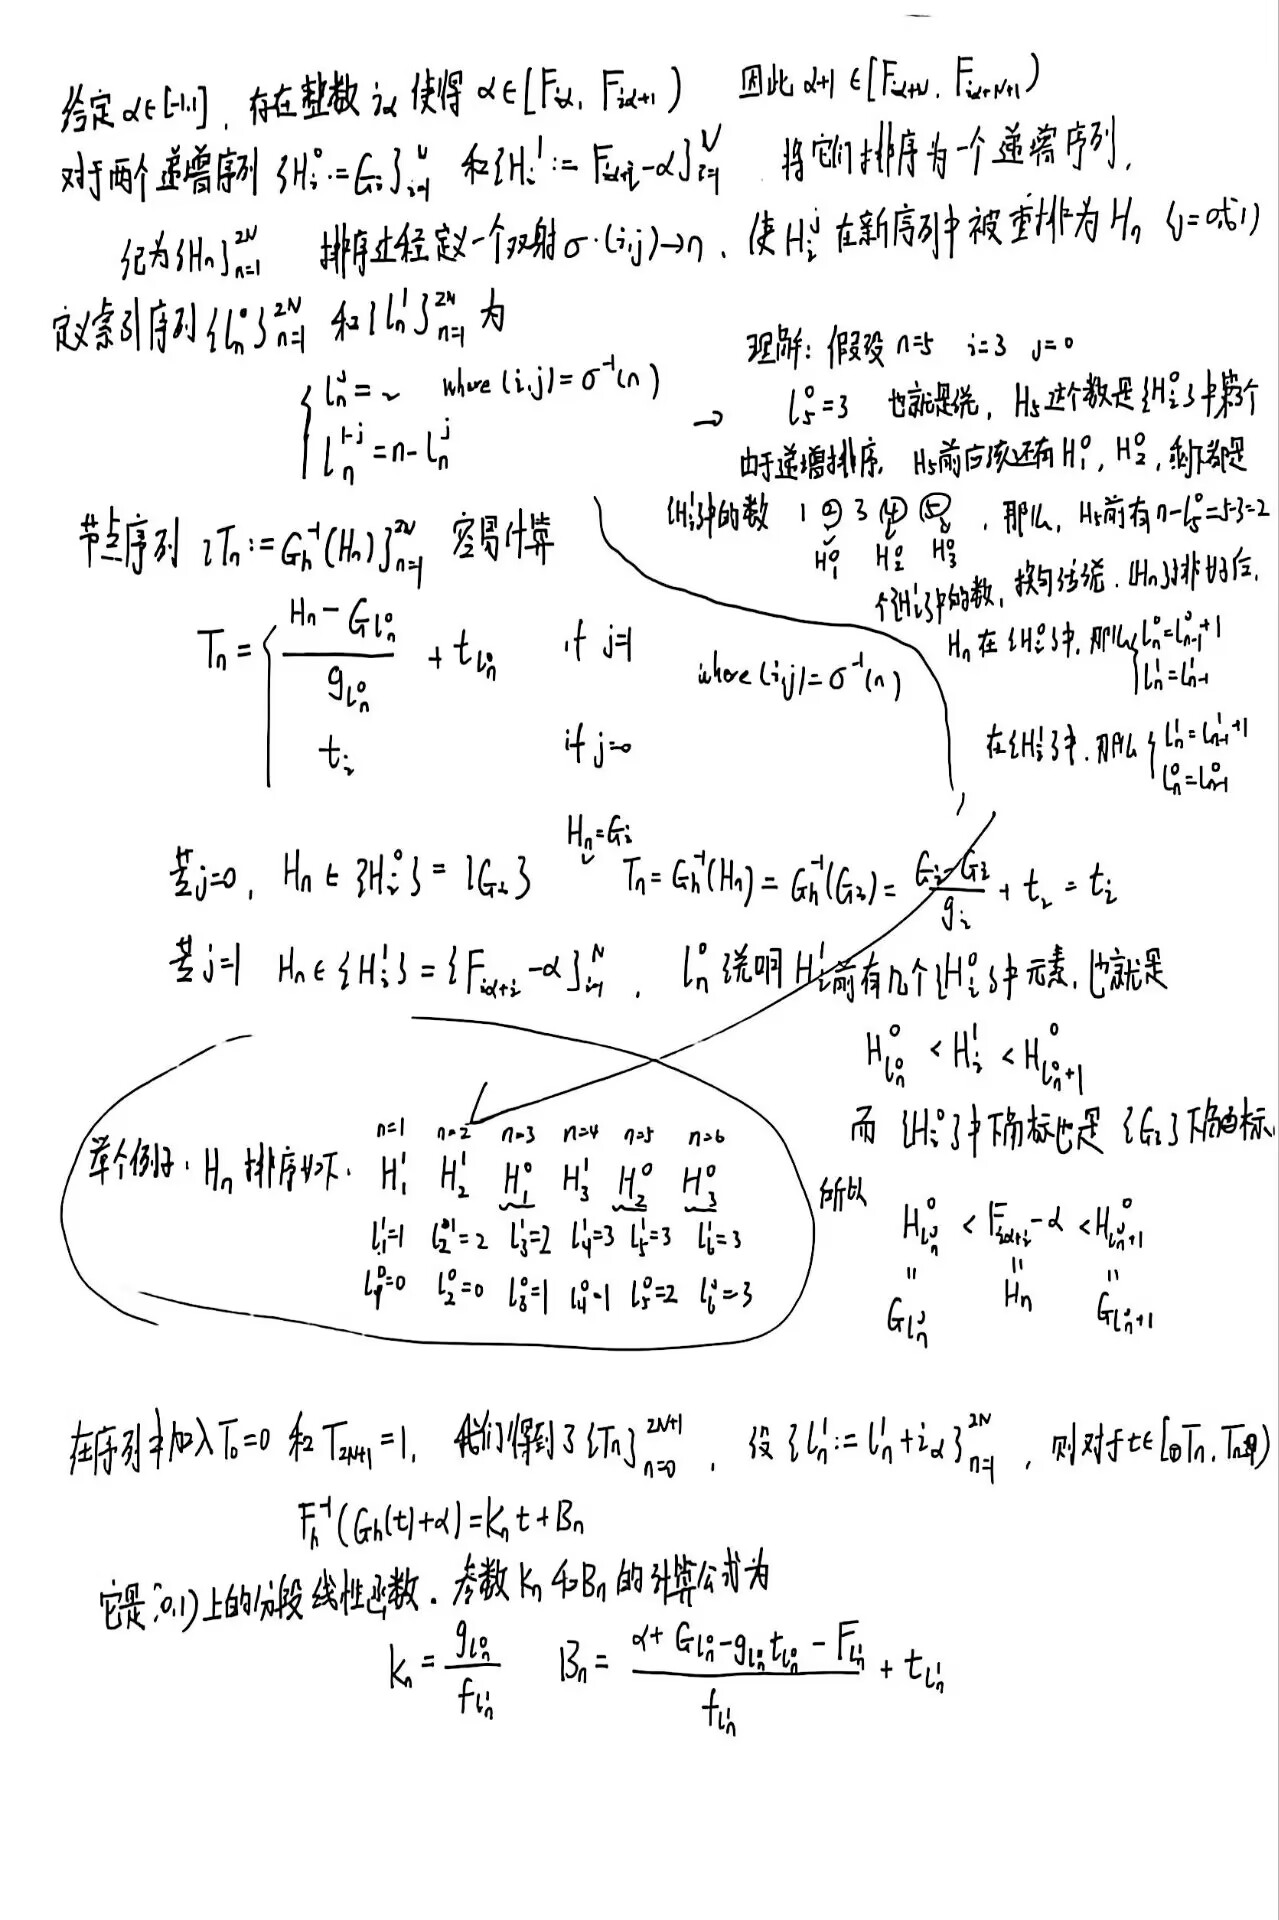 给定 α∈[-1,1], 存在整数 iα 使得 α∈[F_{iα}, F_{iα+1}) 因此 α+1 ∈[F_{iα+N}, F_{iα+N+1})
对于两个递增序列 {H_i^0 := G_i}_{i=1}^N 和 {H_i^1 := F_{iα+i}-α}_{i=1}^N 将它们排序为一个递增序列,
记为{H_n}_{n=1}^{2N} 排序过程定义一个双射 σ:(i,j)→n, 使 H_i^j 在新序列中被重排为 H_n (j=0或1)
定义索引序列{l_n^0}_{n=1}^{2N} 和 {l_n^1}_{n=1}^{2N} 为
l_n^j = i where (i,j)=σ^{-1}(n)
l_n^{1-j} = n-l_n^j
→ 理解: 假设 n=5 i=3 j=0
l_5^0=3 也就是说, H_5 这个数是{H_i^0}中第3个
由于递增排序, H_5前应该还有 H_1^0, H_2^0, 剩下都是
{H_i^1}中的数 1 ② 3 ④ ⑤, 那么, H_5前有 n-l_5^0=5-3=2
H_1^0 H_2^0 H_3^0
个{H_i^1}中的数, 换句话说, {H_n}排好后,
H_n 在{H_i^0}中, 那么 { l_n^0=l_{n-1}^0+1
l_n^1=l_{n-1}^1
在{H_i^1}中, 那么 { l_n^1=l_{n-1}^1+1
l_n^0=l_{n-1}^0
节点序列 {T_n:=G_h^{-1}(H_n)}_{n=1}^{2N} 容易计算
T_n = { \frac{H_n - G_{l_n^0}}{g_{l_n^0}} + t_{l_n^0} if j=1
t_i if j=0
where (i,j)=σ^{-1}(n)
若j=0, H_n ∈ {H_i^0} = {G_i} H_n=G_i T_n=G_h^{-1}(H_n)=G_h^{-1}(G_i)= \frac{G_i-G_i}{g_i} + t_i = t_i
若j=1 H_n ∈ {H_i^1} = {F_{iα+i}-α}_{i=1}^N, l_n^0 说明 H_i^1前有几个{H_i^0}中元素, 也就是
H_{l_n^0}^0 < H_i^1 < H_{l_n^0+1}^0
而 {H_i^0}中下角标也是 {G_i}下角标,
所以 H_{l_n^0}^0 < F_{iα+i}-α < H_{l_n^0+1}^0
= = =
G_{l_n^0} H_n G_{l_n^0+1}
举个例子: H_n 排序如下:
n=1 n=2 n=3 n=4 n=5 n=6
H_1^1 H_2^1 H_1^0 H_3^1 H_2^0 H_3^0
l_1^1=1 l_2^1=2 l_3^1=2 l_4^1=3 l_5^1=3 l_6^1=3
l_1^0=0 l_2^0=0 l_3^0=1 l_4^0=1 l_5^0=2 l_6^0=3
在序列中加入T_0=0 和 T_{2N+1}=1, 我们得到了{T_n}_{n=0}^{2N+1}, 设{l_n^1:=l_n^1+iα}_{n=1}^{2N}, 则对于t∈[T_n, T_{n+1})
F_h^{-1}(G_h(t)+α)=K_n t+B_n
它是[0,1)上的分段线性函数. 参数 K_n 和 B_n 的计算公式为
K_n = \frac{g_{l_n^0}}{f_{l_n^1}} B_n = \frac{α+G_{l_n^0}-g_{l_n^0}t_{l_n^0}-F_{l_n^1}}{f_{l_n^1}} + t_{l_n^1}